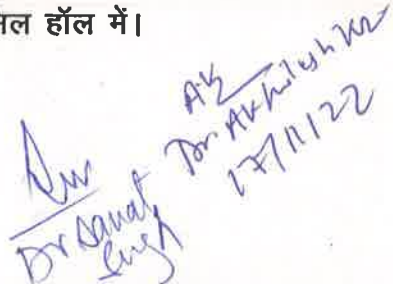 हॉल में।
Dr Sanat
Singh
Dr Akhilesh Kr
17/11/22